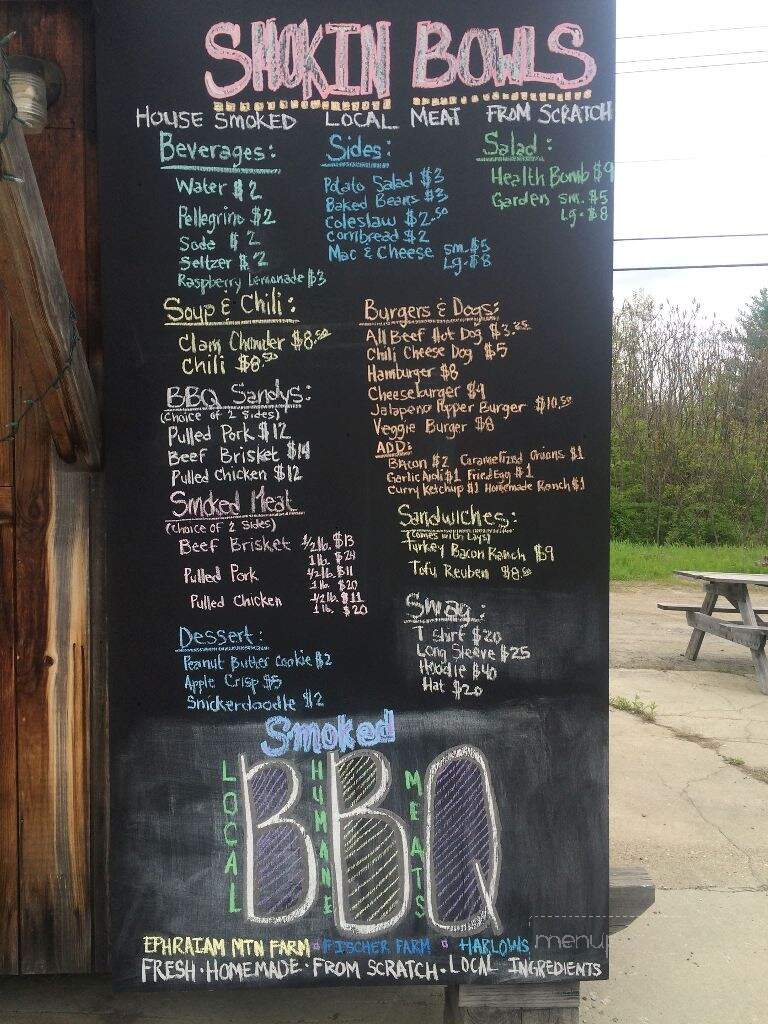 SMOKIN BOWLS
HOUSE SMOKED LOCAL MEAT FROM SCRATCH
Beverages:
Water $2
Pellegrino $2
Soda $2
Seltzer $2
Raspberry Lemonade $3
Sides:
Potato Salad $3
Baked Beans $3
Coleslaw $2.50
Cornbread $2
Mac & Cheese sm. $5
Lg. $8
Salad:
Health Bomb $9
Garden sm. $5
Lg. $8
Soup & Chili:
Clam Chowder $8.50
Chili $8.50
BBQ Sandys:
(Choice of 2 Sides)
Pulled Pork $12
Beef Brisket $14
Pulled Chicken $12
Smoked Meat
(Choice of 2 Sides)
Beef Brisket 1/2 lb. $13
1 lb. $24
Pulled Pork 1/2 lb. $11
1 lb. $20
Pulled Chicken 1/2 lb. $11
1 lb. $20
Dessert:
Peanut Butter Cookie $2
Apple Crisp $5
Snickerdoodle $2
Burgers & Dogs:
All Beef Hot Dog
Chili Cheese Dog $5
Hamburger $8
Cheeseburger $9
Jalapeno Popper Burger $10.50
Veggie Burger $8
ADD:
Bacon $2 Caramelized Onions $1
Garlic Aioli $1 Fried Egg $1
Curry Ketchup $1 Homemade Ranch $1
Sandwiches:
(Comes with Lays)
Turkey Bacon Ranch $9
Tofu Reuben $8.50
Swag:
T shirt $20
Long Sleeve $25
Hoodie $40
Hat $20
Smoked
LOCAL HUMANE MEATS
BBQ
EPHRAIAM MTN FARM FISCHER FARM HARLOWS
FRESH · HOMEMADE · FROM SCRATCH · LOCAL INGREDIENTS